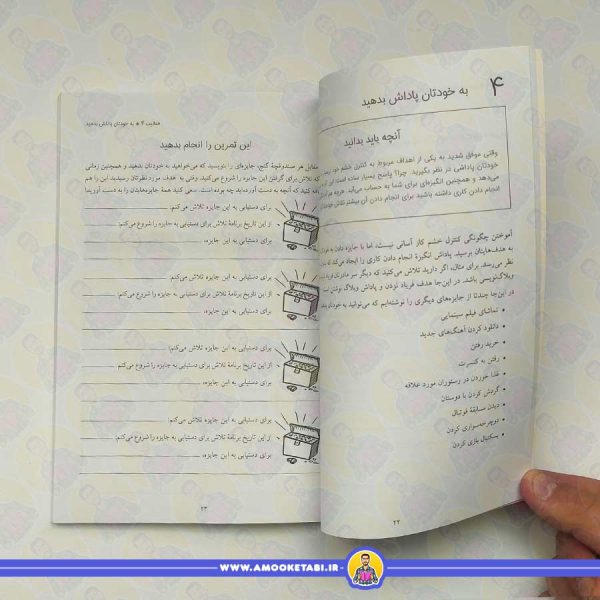 ۴
به خودتان پاداش بدهید
آنچه باید بدانید
وقتی موفق شدید به یکی از اهداف مربوط به کنترل خشم خود
خودتان پاداشی در نظر بگیرید. چرا؟ پاسخ بسیار ساده است
می‌دهد و همچنین انگیزه‌ای برای شما به حساب می‌آید. هرچه
انجام دادن کاری داشته باشید برای انجام دادن آن بیشتر تلاش
آموختن چگونگی کنترل خشم کار آسانی نیست، اما با جایزه دادن به
به هدف‌هایتان برسید. پاداش انگیزهٔ انجام دادن کاری را ایجاد می‌کند
نظر می‌رسند. برای مثال، اگر دارید تلاش می‌کنید که دیگر سر مادرتان
وبلاگ‌نویسی باشد. در این‌جا هدف فریاد نزدن و پاداش وبلاگ نوشتن
در این‌جا چندتا از جایزه‌های دیگری را نوشته‌ایم که می‌توانید به
• تماشای فیلم سینمایی
• دانلود کردن آهنگ‌های جدید
• خرید رفتن
• رفتن به کنسرت
• غذا خوردن در رستوران مورد علاقه
• گردش کردن با دوستان
• دیدن مسابقهٔ فوتبال
• دوچرخه‌سواری کردن
• بسکتبال بازی کردن
۲۲
فعالیت ۴ * به خودتان پاداش بدهید
این تمرین را انجام بدهید
مقابل هر صندوقچهٔ گنج، جایزه‌ای را بنویسید که می‌خواهید به خودتان بدهید و همچنین زمانی
که تلاش برای گرفتن این جایزه را شروع می‌کنید. وقتی به هدف مورد نظرتان رسیدید این را هم
کنید که آنچه به دست آورده‌اید چه بوده است. سعی کنید همهٔ جایزه‌هایتان را به دست آورید!
برای دستیابی به این جایزه تلاش می‌کنم:
از این تاریخ برنامهٔ تلاش برای دستیابی به جایزه را شروع می‌کنم:
برای دستیابی به این جایزه،
برای دستیابی به این جایزه تلاش می‌کنم:
از این تاریخ برنامهٔ تلاش برای دستیابی به جایزه را شروع می‌کنم:
برای دستیابی به این جایزه،
برای دستیابی به این جایزه تلاش می‌کنم:
از این تاریخ برنامهٔ تلاش برای دستیابی به جایزه را شروع می‌کنم:
برای دستیابی به این جایزه،
برای دستیابی به این جایزه تلاش می‌کنم:
از این تاریخ برنامهٔ تلاش برای دستیابی به جایزه را شروع می‌کنم:
برای دستیابی به این جایزه،
۲۳
WWW.AMOOKETABI.IR